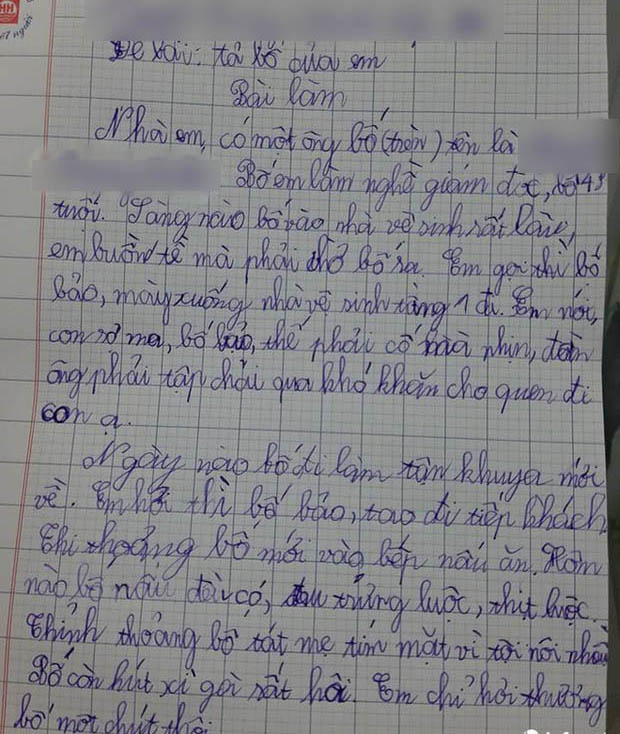 HH
Đề bài: tả bố của em
Bài làm
Nhà em, có một ông bố (trên) tên là
Bố em làm nghề giám đốc, bố 43
tuổi. Sáng nào bố vào nhà vệ sinh rất lâu,
em buồn tè mà phải chờ bố ra. Em gọi thì bố
bảo, mày xuống nhà vệ sinh tầng 1 đi. Em nói,
con sợ ma, bố bảo, thế phải cố mà nhịn, đàn
ông phải tập chải qua khó khăn cho quen đi
con ạ.
Ngày nào bố đi làm tận khuya mới
về. Em hỏi thì bố bảo, tao đi tiếp khách
Thi thoảng bố mới vào bếp nấu ăn. Hôm
nào bố nấu đều có, trứng luộc, thịt luộc.
Thỉnh thoảng bố tát mẹ tím mặt vì tội nói nhiều
Bố còn hút xì gà rất hôi. Em chỉ hơi thương
bố một chút thôi